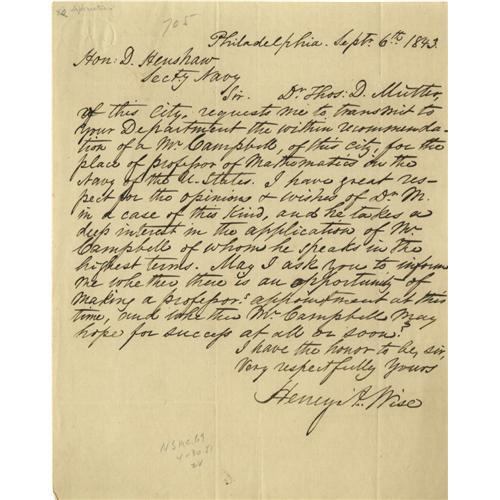 705
Philadelphia. Septr. 6th 1843.
Hon: D. Henshaw
Secty Navy
Sir. Dr. Thos: D. Mutter,
of this city, requests me to transmit to
your Department the within recommenda-
tion of a Mr. Campbell, of this city, for the
place of professor of Mathematics in the
Navy of the U. States. I have great res-
pect for the opinion & wishes of Dr. M.
in a case of this kind, and he takes a
deep interest in the application of Mr.
Campbell of whom he speaks in the
highest terms. May I ask you to inform
me whether there is an opportunity of
making a professor's appointment at this
time, and whether Mr. Campbell may
hope for success at all or soon?
I have the honor to be, sir,
Very respectfully Yours
Henry A. Wise